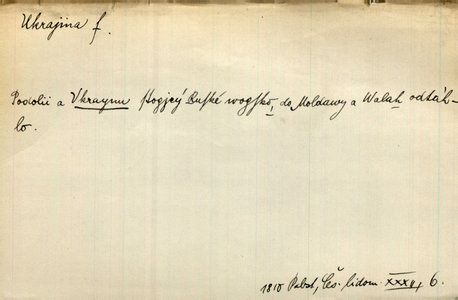 Ukrajina f.
Podolii a Vkraynu stogjcý Ruské wogsko, do Moldawy a Walah odtáh-
lo.
1810 Pabst, Čes. lidom. 6.